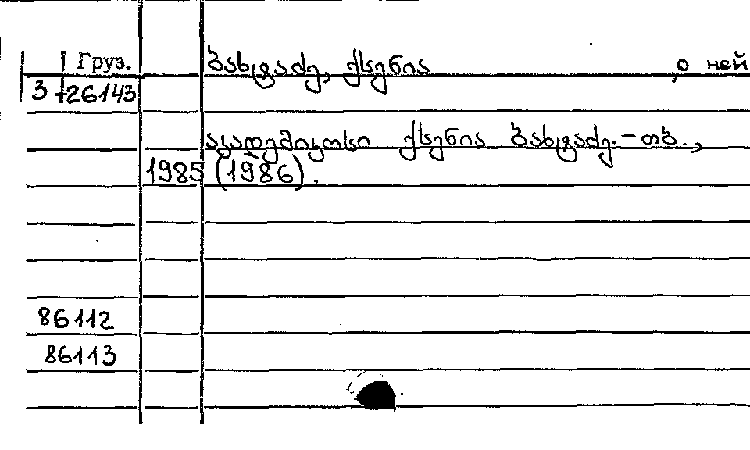 Груз. ბახტაძე, ქსენია , о ней
3 +26143
აკადემიკოსი ქსენია ბახტაძე. – თბ.,
1985 (1986).
86112
86113